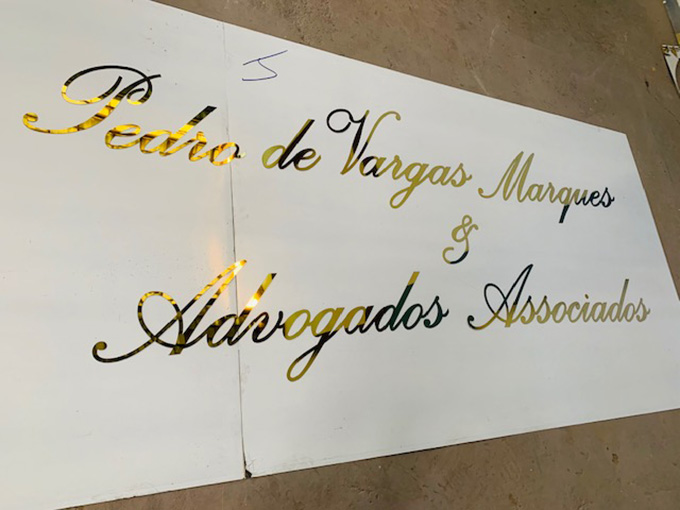 Pedro de Vargas Marques
&
Advogados Associados